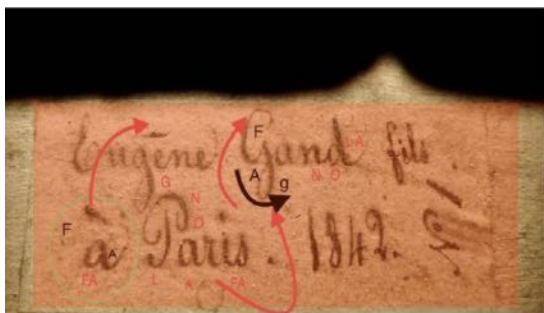 Eugène Gand fils.
à Paris. 1842. N° 1
F
A g
LA
G
N D
N
D
F
A
FA
L A FA